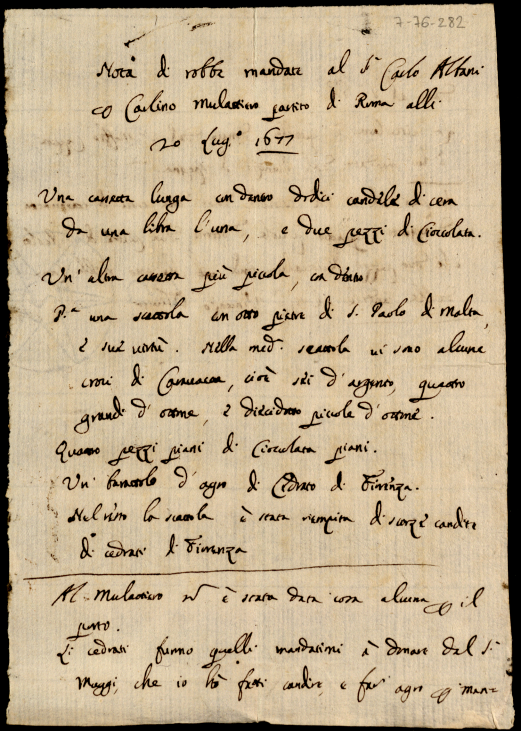 7-76-282
Nota di robbe mandate al Sr Carlo Altani
Carlino Mulattiero partito di Roma alli
20 Lug.o 1677
Una cassetta lunga con dentro dodici candele di cera
da una libra l'una, e due pezzi di Cioccolata.
Un'altra cassetta più piccola, con dentro
P.a una scattola con otto pietre di S. Paolo di Malta,
e sue virtù. Nella med. scattola vi sono alcune
croci di Caravacca, cioè sei d'argento, quattro
grandi d'ottone, e diecidotto piccole d'ottone.
Quattro pezzi piani di Cioccolata piani.
Un barattolo d'agro di Cedrato di Firenza.
Nel resto la scattola è stata riempita di scorze candite
di cedrati di Firenza
Al Mulattiero è stata data cosa alcuna il
porto.
Li cedrati furno quelli mandatimi à donare dal Sr
Maggi, che io hò fatti candire, e far agro man=